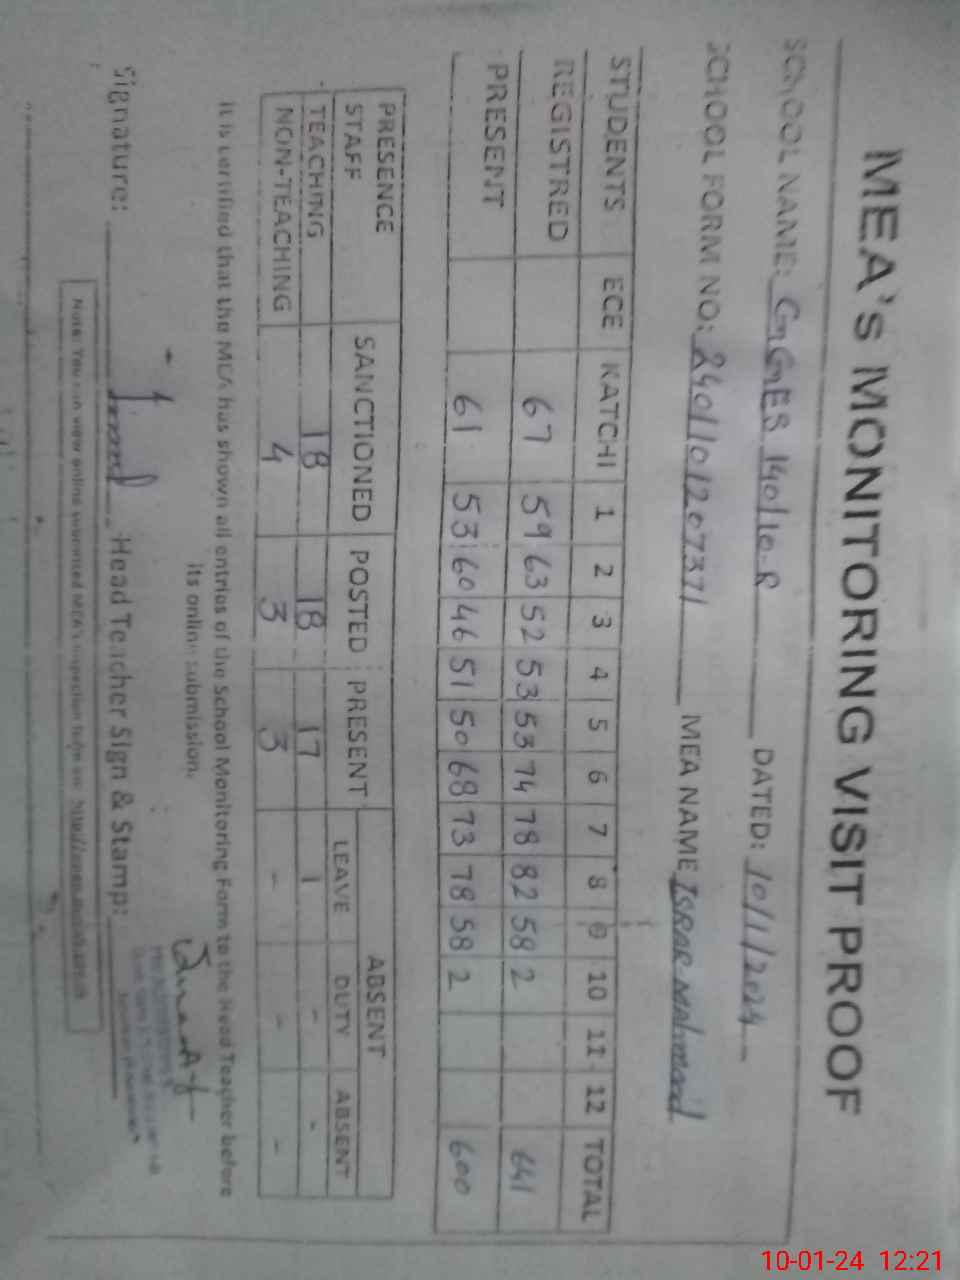 MEA's MONITORING VISIT PROOF
SCHOOL NAME: GGES 140/10-R DATED: 10/1/2024
SCHOOL FORM NO: 2401101207371 MEA NAME ISRAR Mahmood
STUDENTS ECE KATCHI 1 2 3 4 5 6 7 8 9 10 11 12 TOTAL
REGISTRED 67 59 63 52 53 53 74 78 82 58 2 641
PRESENT 61 53 60 46 51 50 68 73 78 58 2 600
PRESENCE STAFF SANCTIONED POSTED PRESENT ABSENT
LEAVE DUTY ABSENT
TEACHING 18 18 17 1 - -
NON-TEACHING 4 3 3 - - -
It is certified that the MEA has shown all entries of the School Monitoring Form to the Head Teacher before
its online submission.
Signature: Head Teacher Sign & Stamp:
Note: You can view online
10-01-24 12:21